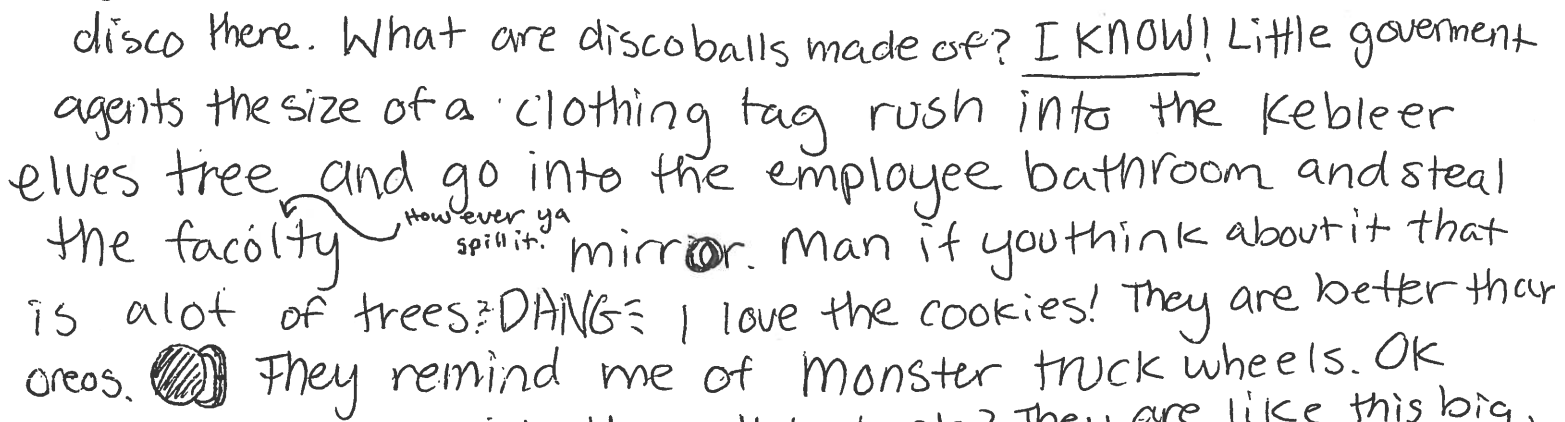 disco there. What are discoballs made of? I KNOW! Little goverment
agents the size of a clothing tag rush into the Kebleer
elves tree and go into the employee bathroom and steal
the facolty However ya spill it. mirror. Man if you think about it that
is alot of trees DANG I love the cookies! They are better than
oreos. They remind me of Monster truck wheels. OK
They are like this big.